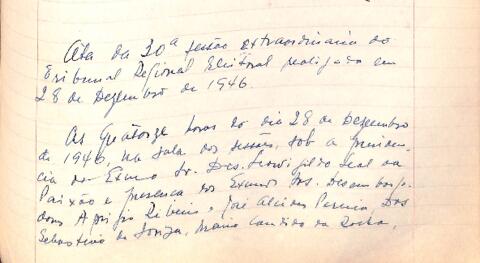 Ata da 30ª sessão extraordinaria do
Tribunal Regional Eleitoral realizada em
28 de Dezembro de 1946.
As Quatorze horas do dia 28 de Dezembro
de 1946, na sala das sessões, sob a presiden-
cia do Exmo Sr. Des. Leovigildo Leal da
Paixão e presença dos Exmos Srs. Desembarga-
dores Aprigio Ribeiro, José Alcides Pereira, Drs
Sebastião de Souza, Mario Candido da Rocha,